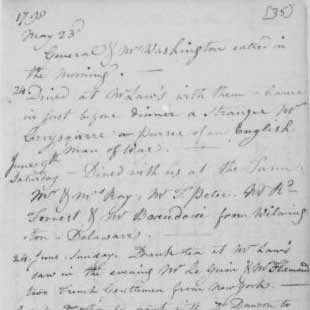 1798 (35)
May 23d
General & Mrs Washington called in
the morning.
24. Dined at Mr Law's with them - came
in just before dinner a Stranger Mr
a Purser of an English
Man of War.
June 9th
Saturday - Dined with us at the Farm
Mr & Mrs Ray, Mr T. Peter, Mr Rd
Forrest & Mr from Wilming
ton - Delaware.
24. June. Sunday. Drank tea at Mr Law's
saw in the evening Mr Le Guin & Mr Flamand
two French Gentlemen from New York.